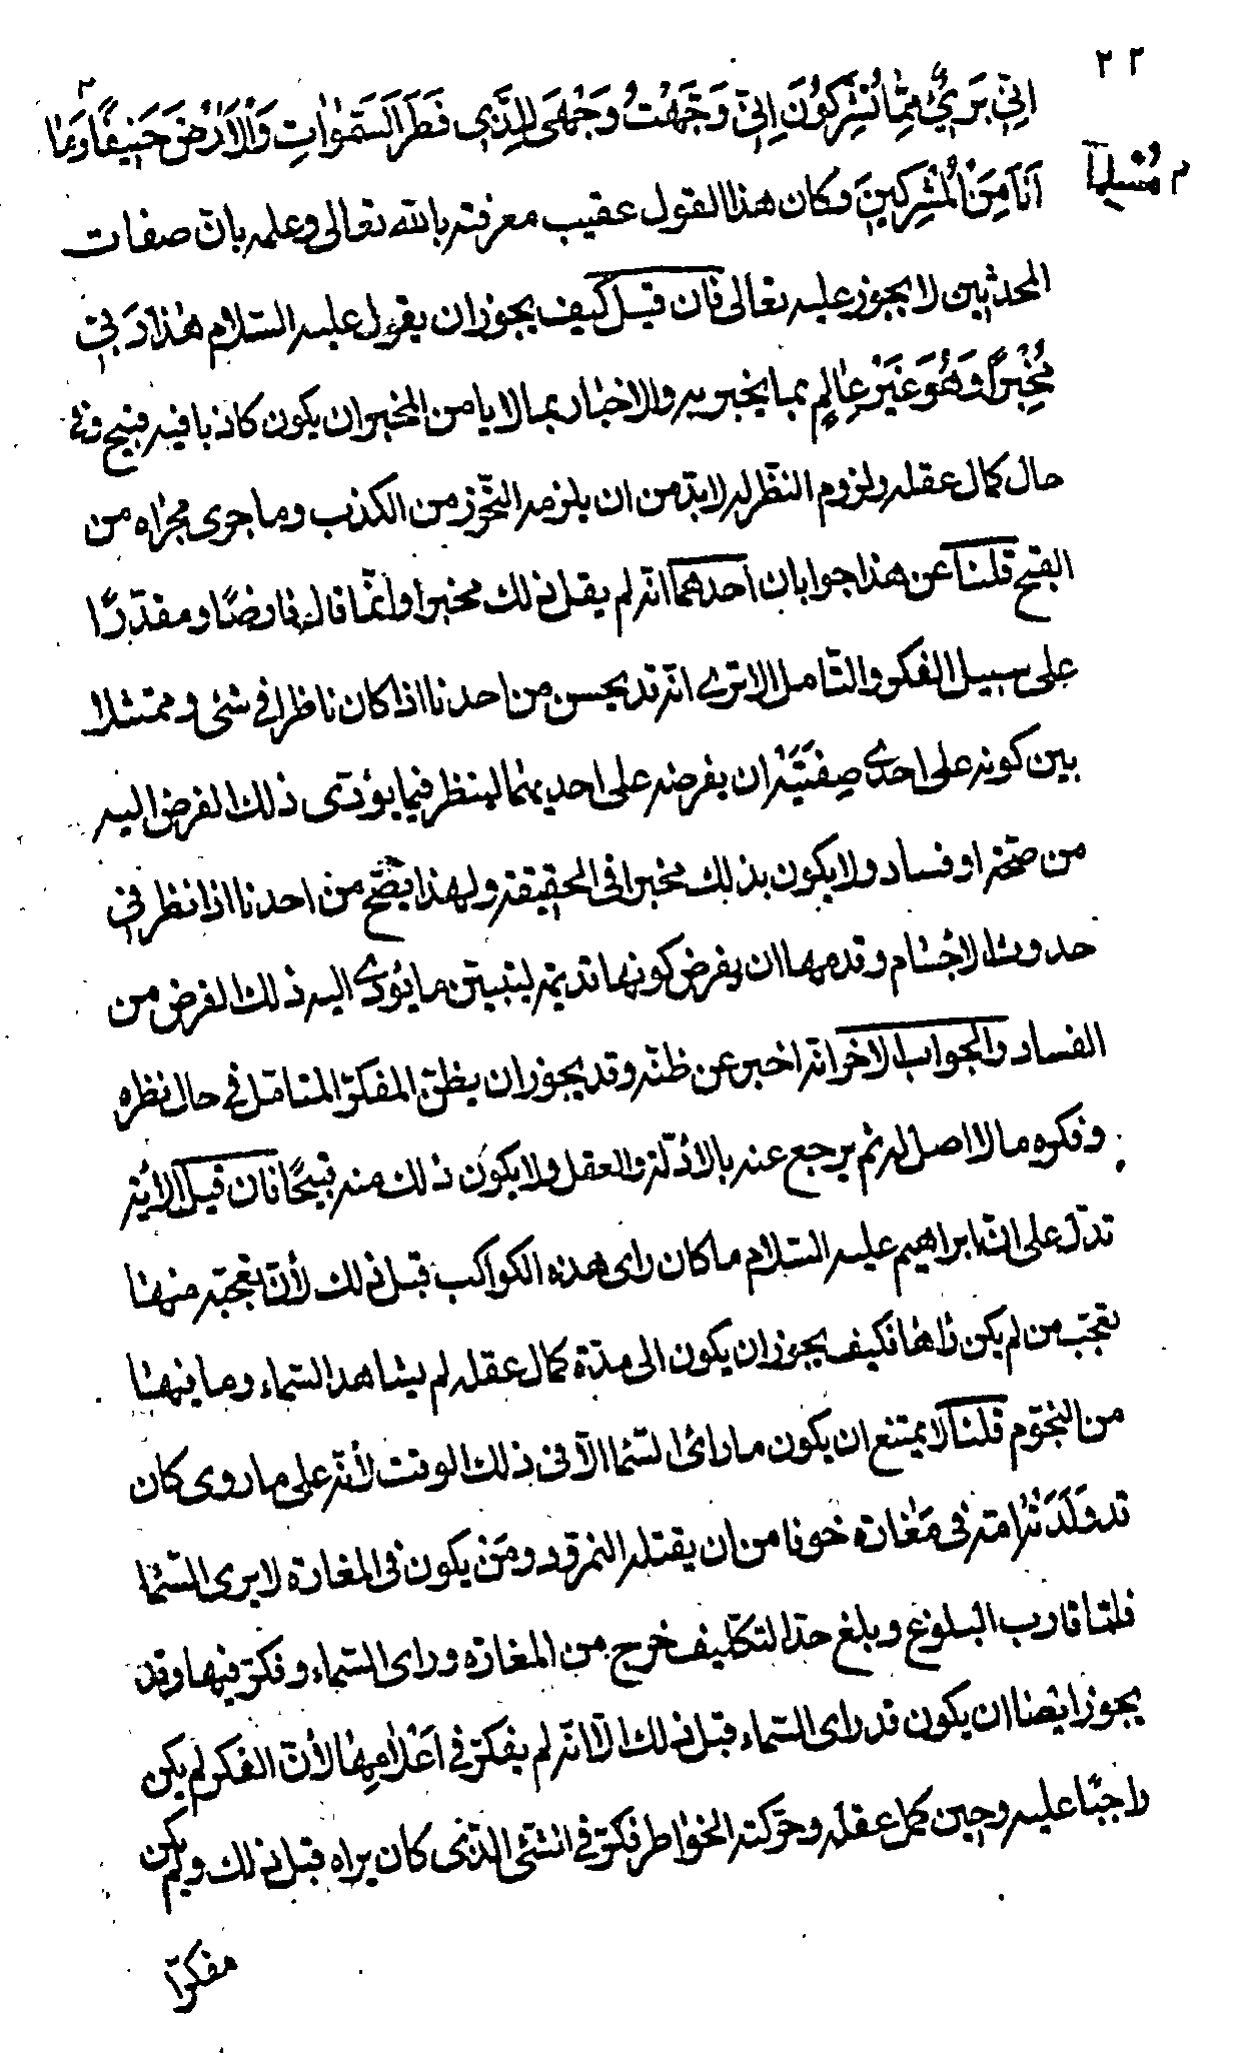 ٢٢
اِنِّي بَرِيٌ مِمَّا تُشْرِكُونَ اِنِّي وَجَّهْتُ وَجْهِيَ لِلَّذِي فَطَرَ السَّمٰوَاتِ وَالْاَرْضَ حَنِيفًا وَمَا
م مُسْلِمًا
اَنَا مِنَ الْمُشْرِكِينَ وكان هذا القول عقيب معرفته بالله تعالى وعلمه بان صفات
المحدثين لا يجوز عليه تعالى فان قيل كيف يجوز ان يقول عليه السلام هٰذا رَبِّي
مُخْبِرًا وَهُوَ غَيْرُ عَالِمٍ بما يخبر به والاخبار بما لا يامن المخبر ان يكون كاذبا فيه قبيح وفي
حال كمال عقله ولزوم النظر له لا بدّ من ان يلزمه التحرّز من الكذب وما جرى مجراه من
القبح قلنا عن هذا جوابان احدهما انه لم يقل ذلك مخبرا وانّما قال فارضًا ومقدّرًا
على سبيل الفكر والتامل الا ترى انه قد يحسن من احدنا اذا كان ناظرا في شئ وممتثلا
بين كونه على احدى صِفَتَيْه ان يفرضه على احديهما لينظر فيما يؤدّى ذلك الفرض اليه
من صحّة او فساد ولا يكون بذلك مخبرا في الحقيقة ولهذا يصّح من احدنا اذا نظر في
حدوث الاجسام وقدمها ان يفرض كونها قديمة ليتبيّن ما يؤدّى اليه ذلك الفرض من
الفساد والجواب الاخر انه اخبر عن ظنّه وقد يجوز ان يظنّ المفكر المتامّل في حال نظره
وفكره ما لا اصل له ثم يرجع عنه بالادلّة والعقل ولا يكون ذلك منه قبيحًا فان قيل الآية
تدلّ على انّ ابراهيم عليه السلام ما كان راى هذه الكواكب قبل ذلك لأنّ تعجّبه منها
تعجّب من لم يكن رٰاهٰا فكيف يجوز ان يكون الى مدّة كمال عقله لم يشاهد السّماء وما فيها
من النجوم قلنا لا يمتنع ان يكون ما راى السّما الّا في ذلك الوقت لأنّه على ما روى كان
قد وَلَدَتْهُ امّه في مَغَارة خوفا من ان يقتله النمرود ومَنْ يكون في المغارة لا يرى السّما
فلمّا قارب البلوغ وبلغ حدّ التكليف خرج من المغارة وراى السّماء وفكّر فيها وقد
يجوز ايضا ان يكون قد راى السّماء قبل ذلك الّا انّه لم يفكّر في اَعْلَامِهَا لأنّ الفكر لم يكن
واجبًا عليه وحين كمل عقله وحرّكته الخواطر فكّر في الشّئ الّذى كان يراه قبل ذلك ولم يكن
مفكرًا